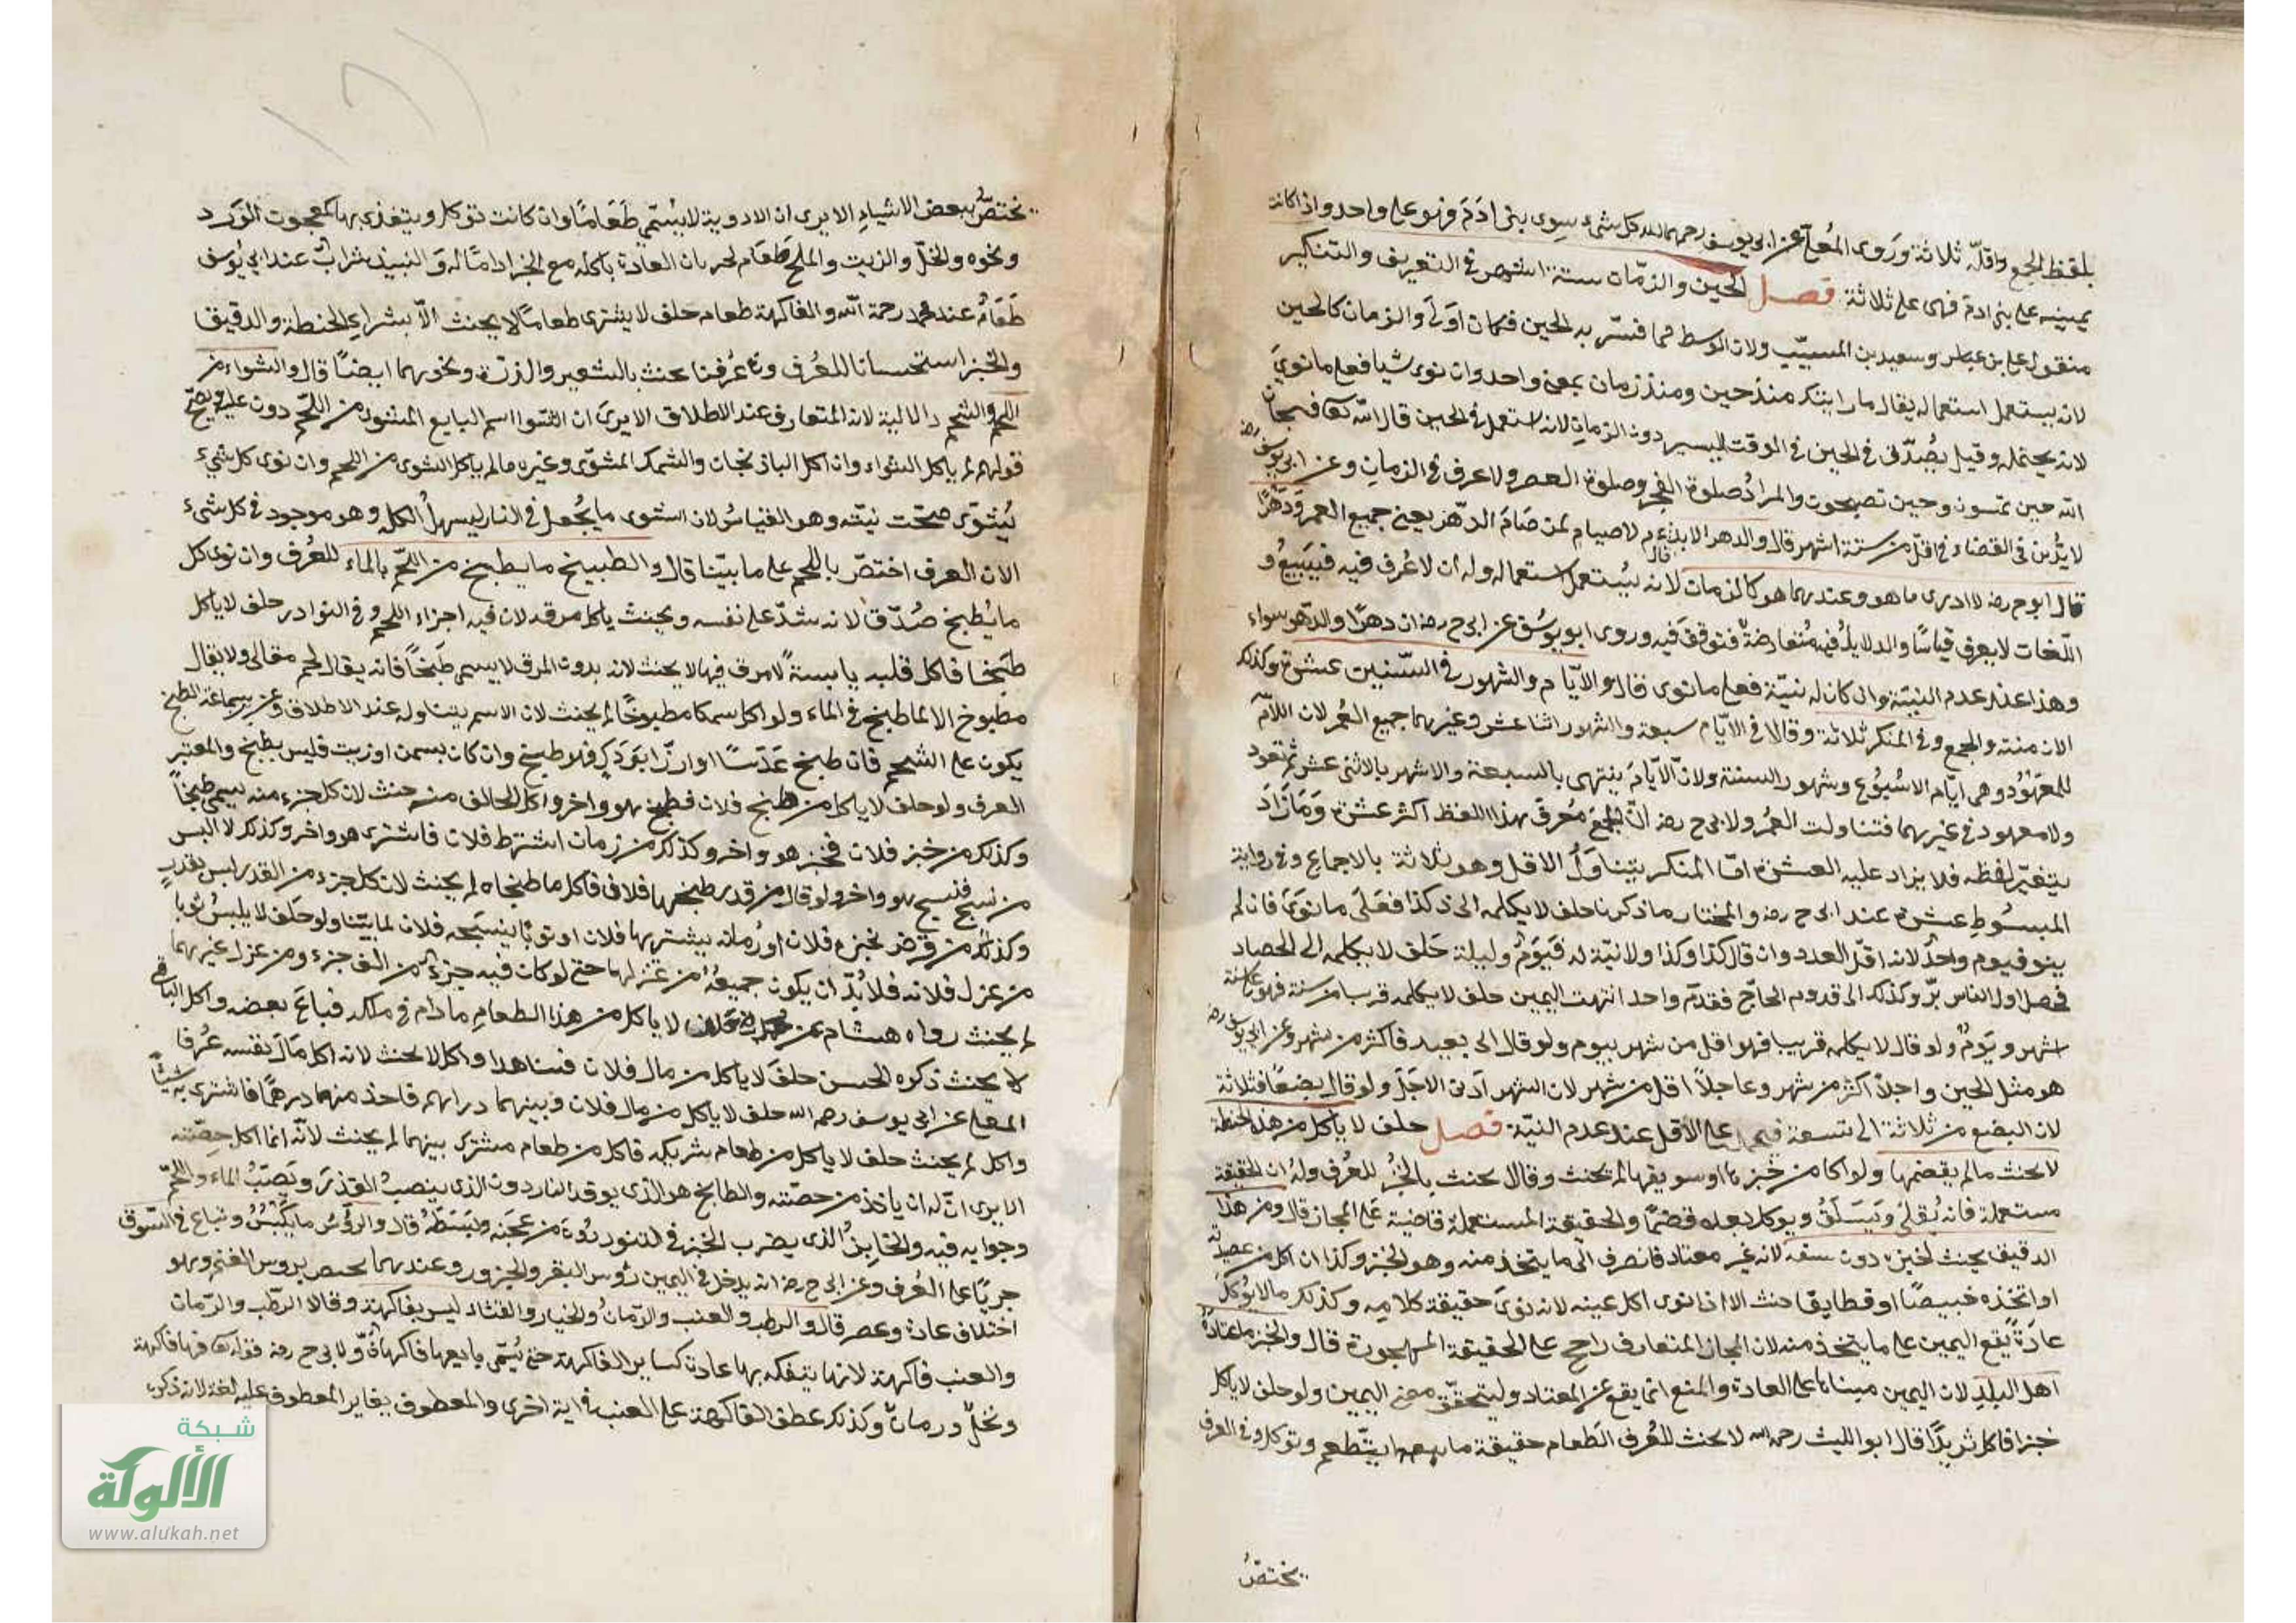 بلفظ الجمع واقلّه ثلاثة وروى المُعلّى عن ابى يوسف رحمهما الله كل شئ سِوى بنى ادَمَ فهو على واحد واذا كانت
يمينه على بنى ادم فهى على ثلاثة فصل الحين والزمان ستة اشهر فى التعريف والتنكير
منقول عن ابن عباس وسعيد بن المسيّب ولان الوسط مما فسّر به الحين فكان اَولى والزمان كالحين
لانه يستعمل استعماله يقال ما رايتك منذ حين ومنذ زمان بمعنى واحد وان نوى شيا فعلى ما نوىَ
لانه يحتمله وقيل يُصَدّق فى الحين فى الوقت اليسير دون الزمان لانه استعمل فى الحين قال الله تعا فسبحان
الله حين تمسون وحين تصبحون والمرادُ صلوة الفجر وصلوة العصر ولا عرف فى الزمان وعن ابى يوسف رضه
لا يُدَيَّن فى القضاء فى اقلّ من ستة اشهر قال والدهر الابد قال عم لا صيام لمن صَامَ الدّهرَ يعنى جميع العمر وَدَهْرًا
قال ابو ح رضه لا ادرى ما هو وعندهما هو كالزمان لانه يُستعمل استعماله وله ان لا عُرف فيه فيتبعُ و
اللغات لا يعرف قياسًا والدلايلُ فيه مُتعارضةٌ فتوقّفَ فيه وروى ابو يوسُف عن ابى ح رضه ان دهرًا والدّهر سواء
وهذا عند عدم النيّة وان كان له نيّة فعلى ما نوى قال والايّام والشهور فى السّنين عشرة وكذلك
الازمنة والجمع وفى المنكر ثلاثة وقالا فى الايّام سبعة والشهور اثنا عشر وغيرهما جميع العُمر لان اللآم
للمعهُوْد وهى ايّام الاسْبُوُع وشهور السنة ولانّ الاَيّامَ ينتهى بالسبعة والاشهر بالاثنى عشر ثم تعود
ولا معهود فى غيرهما فتناولت العُمرَ ولابى ح رضه انّ الجمعَ مُعرفَ بهذا اللفظ اكثر عشرة وَمَا زَادَ
يتغيّر لفظه فلا يزاد عليه العشرة امّا المنكر يتناوَلُ الاقل وهو ثلاثة بالاجماع وفى رواية
المبسُوطِ عشرة عند ابى ح رضه والمختار ما ذكرنا حلف لا يكلمه الى ذكذا فعَلَى ما نوَىَ فان لم
ينو فيوم واحدٌ لانه اقلّ العدد وان قال كذا وكذا ولا نيّة له فَيَوَمٌ وليلة حَلف لا يكلمه الى الحصاد
فحصل اول الناس برّ وكذلك الى قدوم الحاجّ فقدم واحد انتهت اليمين حلف لا يكلمه قريبا من سنة فهو على ستة
اشهر ويَومٌ ولو قال لا يكلمه قريبا فهو اقل من شهر بيوم ولو قال الى بعيد فاكثر من شهر وعن ابى يوسف رضه
هو مثل الحين واجلاً اكثر من شهر وعاجلاً اقل من شهر لان الشهر اَدنى الاجَلَ ولو قال بضعًا فثلاثة
لان البضع من ثلاثة الى تسعة فيحمل على الأقل عند عدم النيّة فصل حلف لا ياكل من هذه الحنطة
لا يحنث مالم يقضمها ولو اكل من خُبزها او سويقها لم يحنث وقال يحنث بالخُبز للعُرف ولهُ ان الحقيقة
مستعملة فانه يُقلىَ وَيسَلَقُ ويوكل بعده قضمًا والحقيقة المستعملة قاضية عَلى المجاز قال ومن هذا
الدقيق يحنث بخبزه دون سفه لانه غير معتاد فانصرف الى ما يتخذ منه وهو الخبز وكذا ان اكل من عصيدته
او اتخذه خبيصًا او قطايفا حنث الا اذا نوى اكل عينه لانه نوىَ حقيقة كلامِه وكذلك ما لا يُؤكل
عادَةً يَقع اليمين على ما يتخذ منه لان المجاز المتعارف راجح على الحقيقة المهجورة قال والخبز ما اعتادهُ
اهل البلدِ لان اليمين مبناها على العادة والمنع انما يقع عن المعتاد وليتحقّق معنى اليمين ولو حلف لا ياكل
خبزا فاكل ثريدًا قال ابو الليث رحمه الله لا يحنث للعُرف الطَعام حقيقة ما يتطعم ويوكل وفى العرف
يختصّ
يختصُّ ببعض الاشياءِ الا يرى ان الادوية لا يسُمّى طَعَامًا وان كانت توكل ويتغذى بها كمعجون الوَرد
ونحوه والخلّ والزيت والملح طَعَام لجريان العادة باكله مع الخبز ادامًا له وَالنبيذ شرابٌ عند ابى يوسُف
طَعَامٌ عند محمد رحمة الله والفاكهة طعام حلف لا يشترى طعامًا لا يحنث الاّ بشراءِ الحنطة والدقيق
والخبز استحسانا للعُرف وفى عُرفنا يحنث بالشعير والذرّة ونحوهما ايضًا قال والشواء من
اللحم دون عليه ويصحّ والشحم والالية لانه المتعارف عند الاطلاق الا يرىَ ان الشوا اسم البايع المشوى من اللحّم
قولهم لم ياكل الشواء وان اكل الباذنجان والسّمك المشوّى وغيره مالم ياكل الشوى من اللحم وان نوى كل شيء
يُشوَى صحّت نيّته وهو القياسُ لان الشوى ما يُجعل فى النار ليسهل اُكله وهو موجود فى كل شىء
الا ان العرف اختصّ باللحم على ما بيّنا قال والطبيخ ما يطبخ من اللحّم بالماء للعُرف وان نوى كل
ما يُطبخ صُدّقَ لانه شدّد على نفسه ويحنث باكل مرقه لان فيه اجزاءَ اللحمِ وفى النوادر حلف لا ياكل
طبَيخا فاكل قلبه يابسةً لا مرق فيها لا يحنث لانه بدون المرق لا يسمى طَبَيخًا فانه يقال لحم مقالى ولا يقال
مطبوخ الا لما طبخ فى الماء ولو اكل سمكا مطبوخًا لم يحنث لان الاسم يتناوله عند الاطلاق وعن ابن سماعة الطبيخ
يكون على الشحم فان طبخ عَدَسًا او ارزًّا بوَدَكٍ فهو طبيخ وان كان بسمن او زيت فليس بطبخ والمعتبر
العرف ولو حلف لا ياكل من طبخ فلان فطبخ هو واخر واكل الحالف منه حنث لان كل جزءٍ منه يسمى طبخًا
وكذلك من خبز فلان فخبز هو واخر وكذلك من رمان اشتراه فلان فاشترى هو واخر وكذلك لا البس
من نسج فنسج هو واخر ولو قال من قدرٍ طبخها فلان فاكل ما طبخاه لم يحنث لان كل جزءٍ من القدر ليس بقدرٍ
وكذلك من قرص يخبزه فلان او رُمانه يشتريها فلان او ثوبًا ينسَجه فلان لما بيّنا ولو حَلف لا يلبسُ ثوبا
من غزل فلانه فلا بُدّ ان يكون جميعُهُ من غزلها حتى لو كان فيه جزءٌ من الف جزءٍ ومن غزل غيرها
لم يحنث رواه هشام عن محمد حلف لا ياكل من هذا الطعامِ ما دَام فى ملكه فباعَ بعضه واكل الباقى
لا يحنث ذكره الحسن حلفَ لا ياكل من مال فلان فتناهدا واكل لا يحنث لانه اكل مَالَ نفسه عُرفا
المعلى عن ابى يوسف رحمه الله حلف لا ياكل من مال فلان وبينهما دراهم فاخذ منهما درهمًا فاشترى به شيئًا
واكل لم يحنث حلف لا ياكل من طعام شريكه فاكل من طعام مشترك بينهما لم يحنث لانّه انما اكل حِصّته
الا يرى انّ له ان ياخذ من حصّته والطابخ هو الذى يوقد النار دون الذى ينصبُ القدْرَ ويَصبّ الماء واللحّمَ
وحوايجه فيه والخابزُ الذى يضرب الخبز فى التنور دُونَ من عجَنه وبَسَطهُ قال والرؤسُ ما يكْبَسُ ويباع فى السّوق
جريًا على العُرف وعن ابى ح رضه انه يدخل فى اليمين رؤس البقر والجزور وعندهما يختص بروس الغنم وهو
اختلاف عادة وعصر قال والرطب والعنب والرّمانُ والخيار والقثاء ليس بفاكهة وقالا الرطب والرّمان
والعنب فاكهة لانها يتفكه بها عادة كساير الفاكهة حتى يُسَمّى بايعها فاكهانيًّا ولابى ح رضه قوله تعا فيها فاكهة
ونخلٌ ورمانٌ وكذلك عطف الفاكهة على العنب فى اية اخرى والمعطوف يغاير المعطوف عليه لغة لانه ذكره
شبكة
الألوكة
www.alukah.net